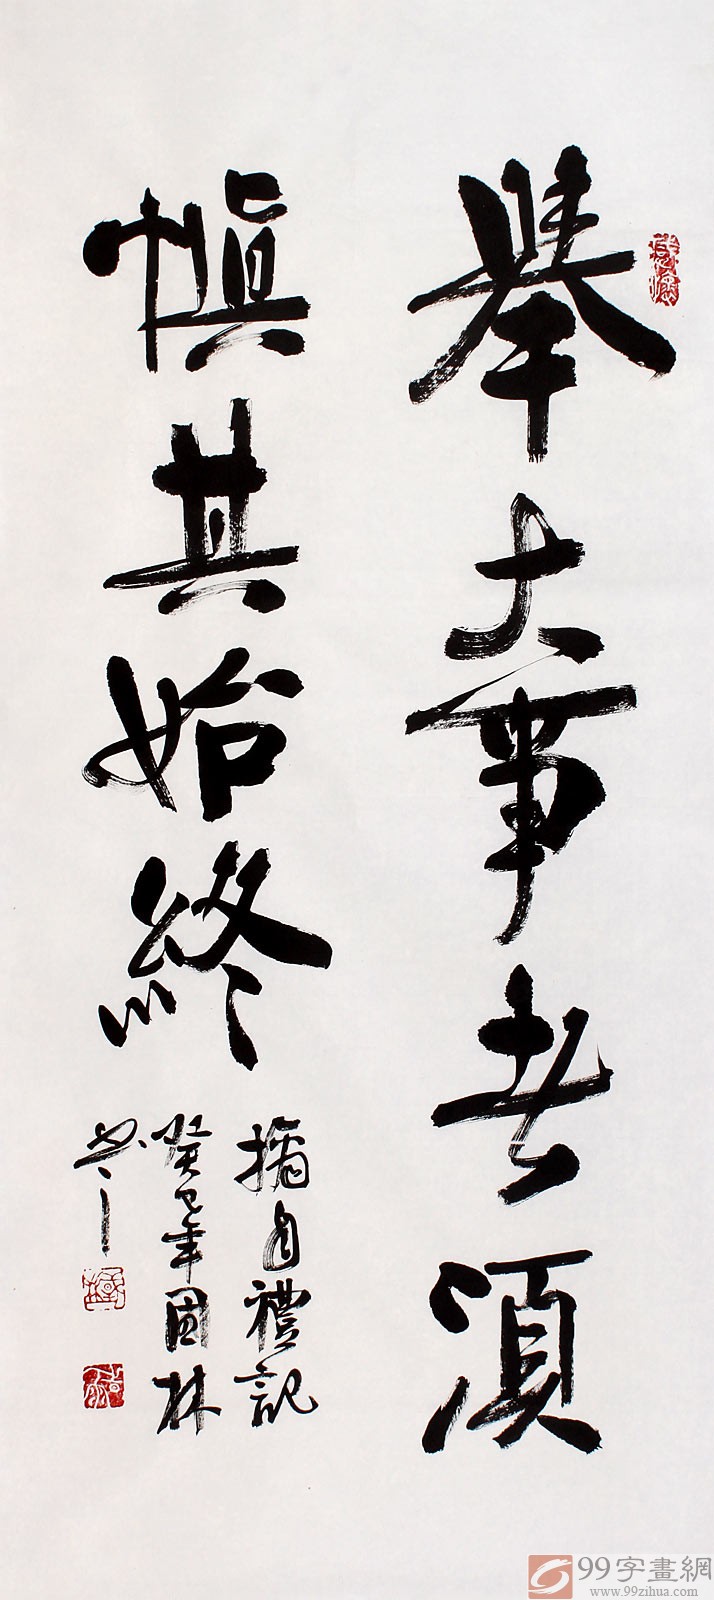 舉大事者須
慎其始終
摘自禮記
癸巳年國林
书
99字畫網
www.99zihua.com